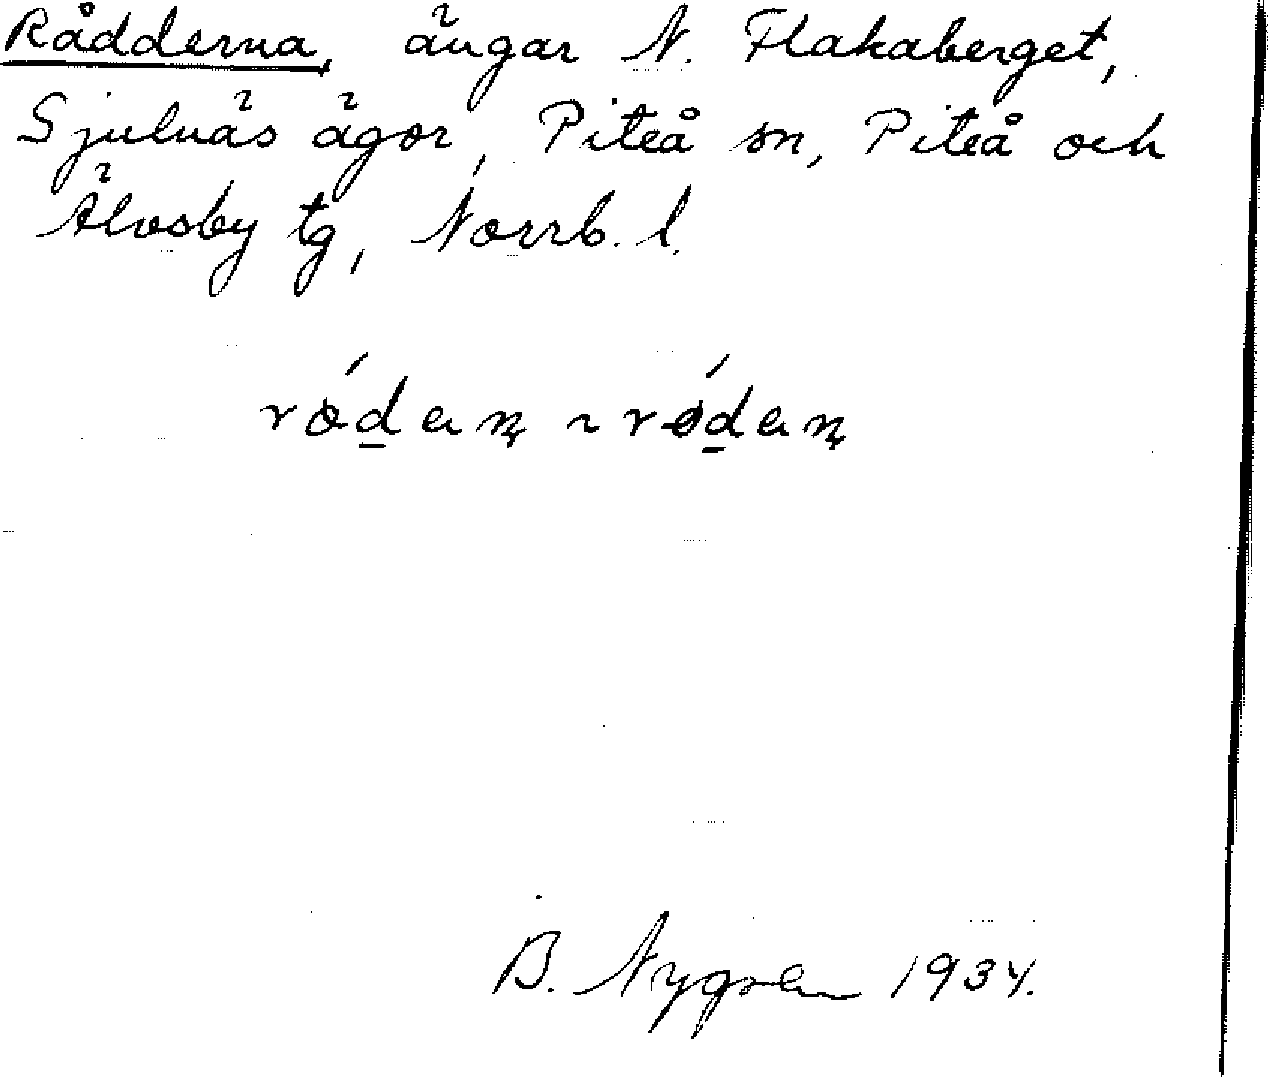 Rådderna, ängar N. Flakaberget,
Sjulnäs ägor, Piteå sn, Piteå och
Älvsby tg, Norrb. l.
ródaṇ ~ rǿdaṇ
B. Nygren 1934.